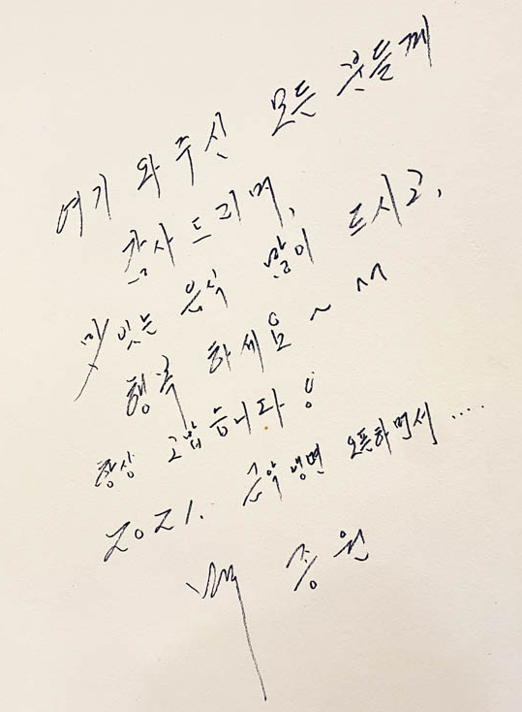 여기 와주신 모든 분들께
감사드리며,
맛있는 음식 많이 드시고,
행복 하세요~ ^^
항상 고맙습니다!
2021. 금악냉면 오픈하면서....
백종원